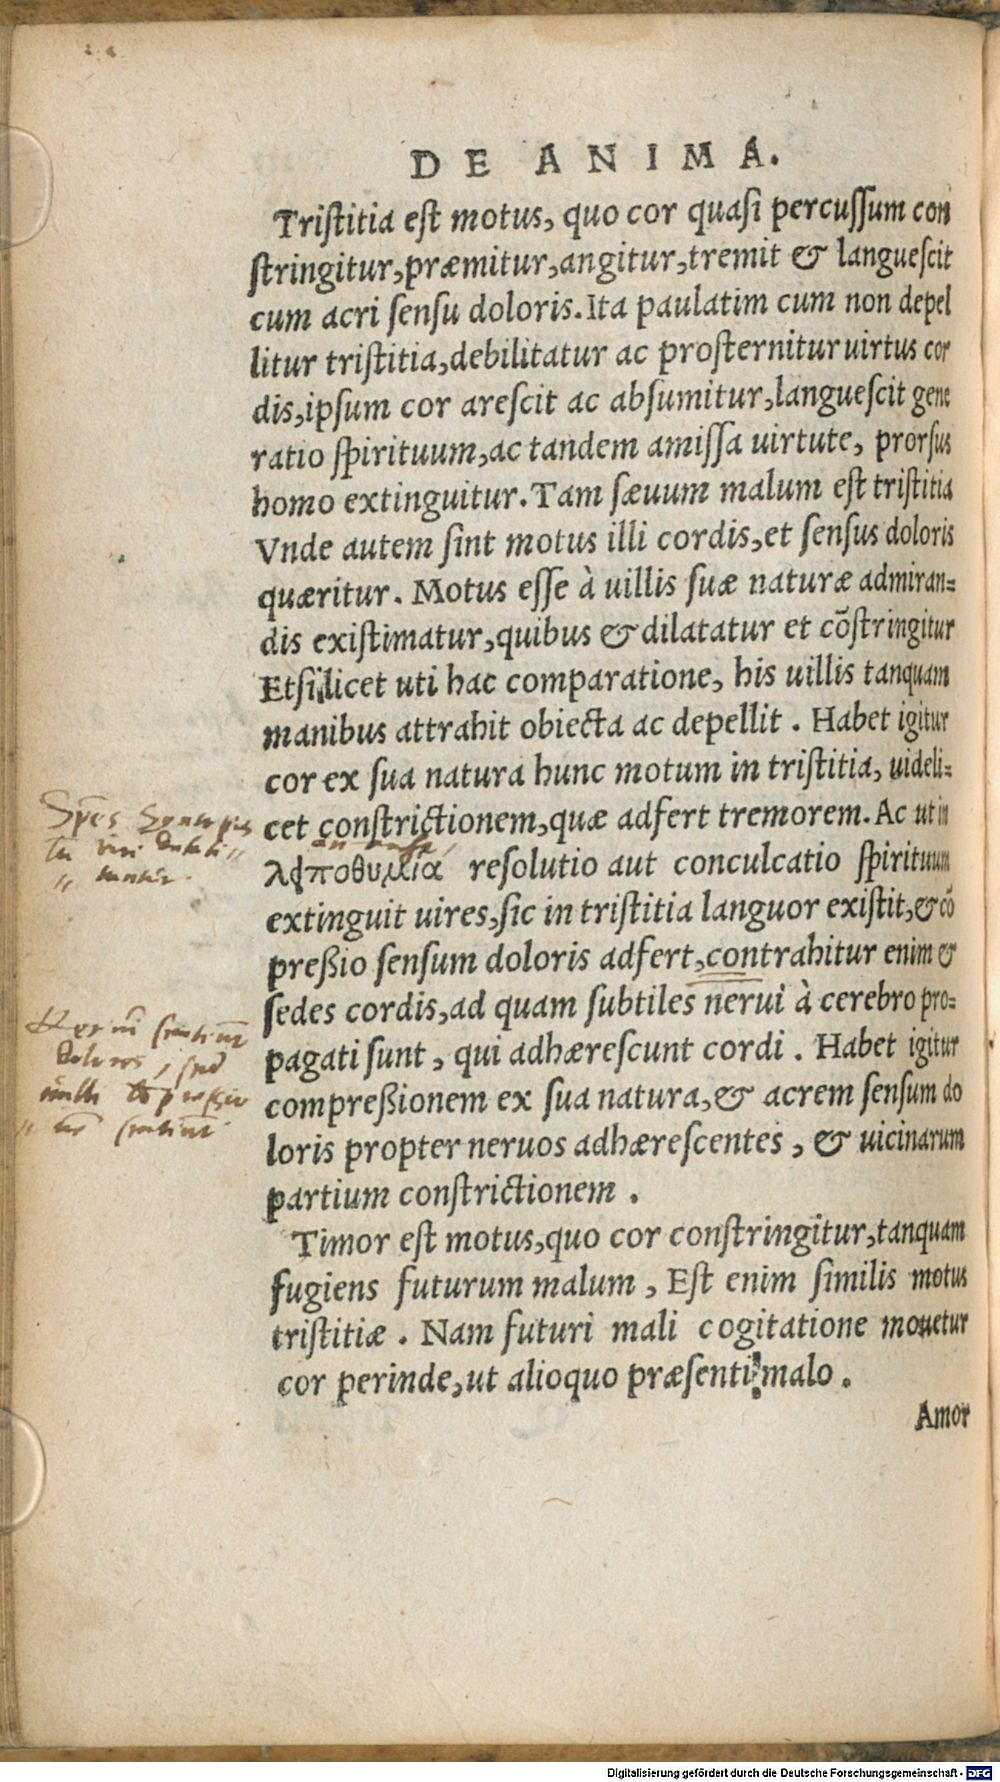 DE ANIMA.
Tristitia est motus, quo cor quasi percussum con
stringitur, præmitur, angitur, tremit & languescit
cum acri sensu doloris. Ita paulatim cum non depel
litur tristitia, debilitatur ac prosternitur uirtus cor
dis, ipsum cor arescit ac absumitur, languescit gene
ratio spirituum, ac tandem amissa uirtute, prorsus
homo extinguitur. Tam sæuum malum est tristitia
Vnde autem sint motus illi cordis, et sensus doloris
quæritur. Motus esse à uillis suæ naturæ admiran=
dis existimatur, quibus & dilatatur et cõstringitur
Etsi licet uti hac comparatione, his uillis tanquam
manibus attrahit obiecta ac depellit. Habet igitur
cor ex sua natura hunc motum in tristitia, uideli=
cet constrictionem, quæ adfert tremorem. Ac ut in
resolutio aut conculcatio spirituum
extinguit uires, sic in tristitia languor existit, & cõ
preßio sensum doloris adfert, contrahitur enim &
sedes cordis, ad quam subtiles nerui à cerebro pro=
pagati sunt, qui adhærescunt cordi. Habet igitur
compreßionem ex sua natura, & acrem sensum do
loris propter neruos adhærescentes, & uicinarum
partium constrictionem.
Timor est motus, quo cor constringitur, tanquam
fugiens futurum malum, Est enim similis motus
tristitiæ. Nam futuri mali cogitatione mouetur
cor perinde, ut alioquo præsenti malo.
Amor
Digitalisierung gefördert durch die Deutsche Forschungsgemeinschaft - DFG